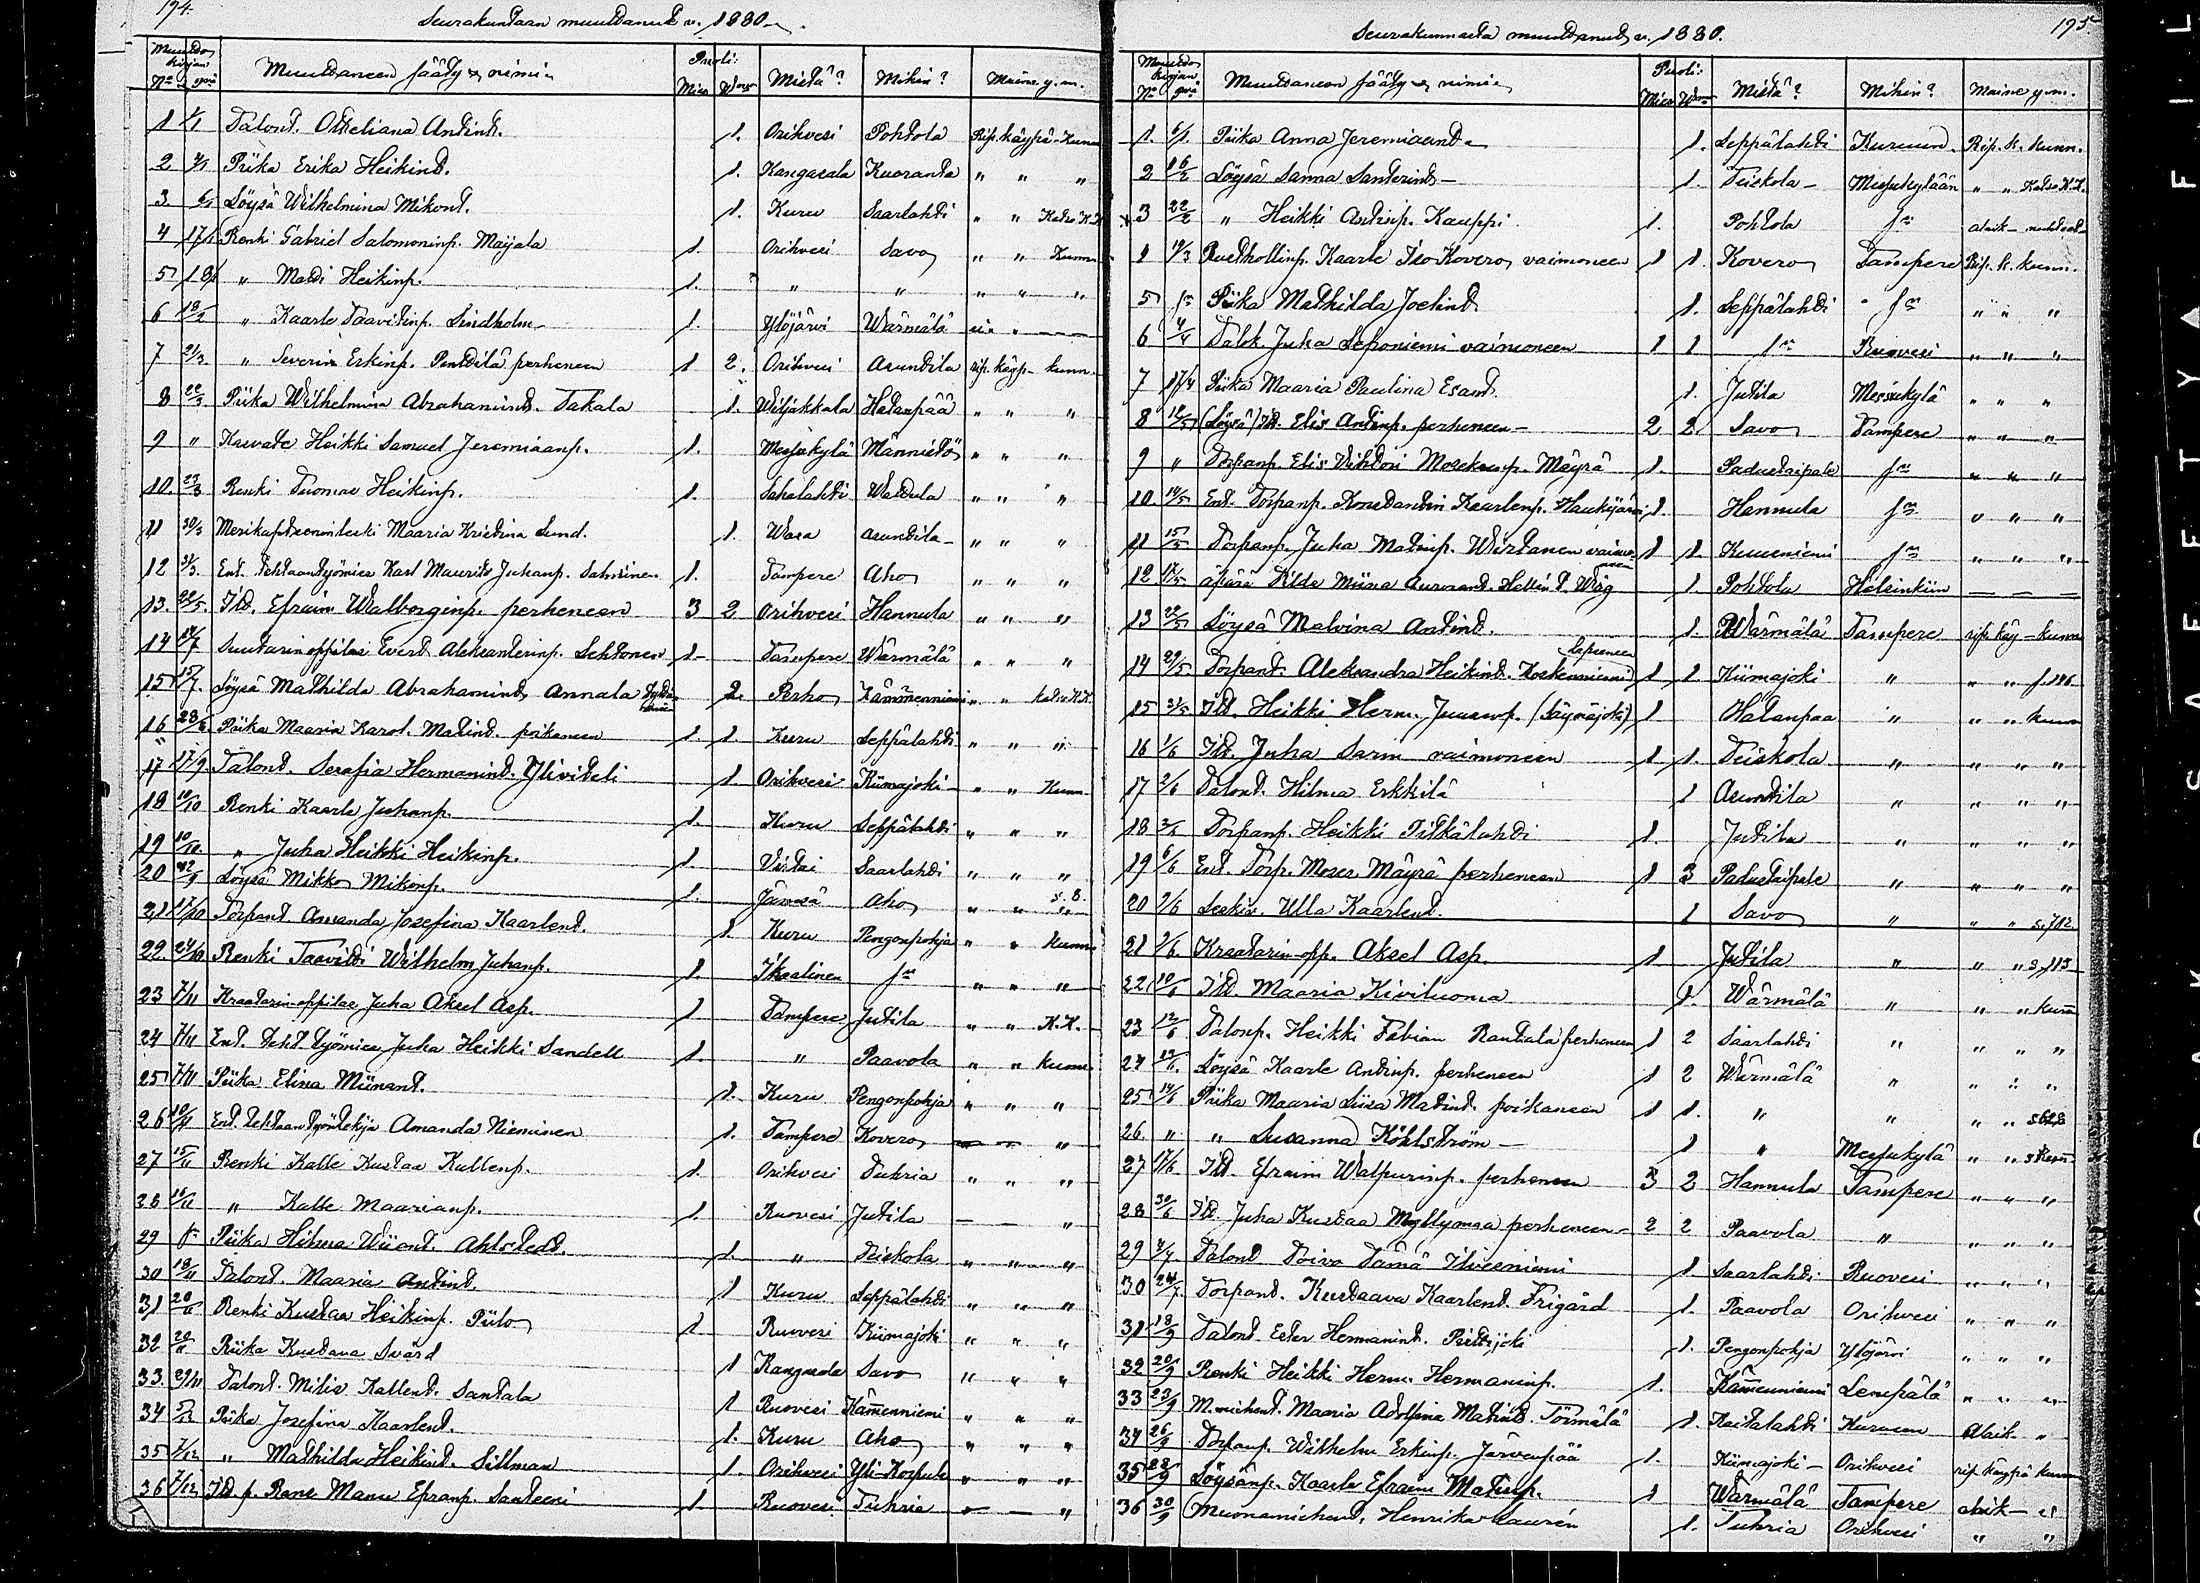 194.
Seurakuntaan muuttanut v. 1880.
Muutto kirjan
No pvä Muuttaneen sääty ja nimi. Puoli: Mies Waim. Mistä? Mihin? Maine y.m.
1 Talont. Otteliana Antint. 1. Orihvesi Pohtola Rip. käypä Kunn
2 Piika Erika Heikint. 1. Kangasala Kuoranta " " "
3 Löysä Wilhelmina Mikont. 1. Kuru Saarlahti " " Katso K.K.
4 17/1 Renki Gabriel Salomoninp. Maijala 1. Orihvesi Savo " " Kunn
5 " Matti Heikinp. 1. " " " " "
6 " Kaarle Taavitinp. Lindholm 1. Ylöjärvi Wärmälä
7 21/3 " Severin Erkinp. Penttilä perheneen 1 2. Orihvesi Asuntila rip. käyp. kunn.
8 22/3 Piika Wilhelmina Abrahamint. Takala 1. Wiljakkala Hatanpää " " "
9 " Kasvate Heikki Samuel Jeremiaanp. 1. Messukylä Männistö " " "
10. Renki Tuomas Heikinp. 1. Sahalahti Wattula " " "
11 30/3 Merikaptenin leski Maaria Kristina Lund. 1. Wasa Asuntila " " "
12 31/3. Ent. Tehtaantyömies Karl Maurits Juhanp. Salminen 1. Tampere Aho " " "
13. Itl. Efraim Walborginp. perheneen 3 2 Orihvesi Hannula " " "
14 Suutarinoppilas Evert Aleksanterinp. Lehtonen 1. Tampere Wärmälä " " "
15 15/7. Löysä Mathilda Abrahamint. Annala 2. Perho Kämmenniemi " " katso K.K.
16 Piika Maaria Karol. Matint. poikaneen 1. 1. Kuru Seppälahti " " "
17 17/9. Talont. Serafia Hermanint. Yliviteli 1 Orihvesi Kiimajoki " " Kunn.
18 10/10 Renki Kaarle Juhanp. 1. Kuru Seppälahti " " "
19 10/10. " Juha Heikki Heikinp. 1. Virtai Saarlahti " " "
20 Löysä Mikko Mikonp. 1. Jämsä Aho " "
21 17/10 Torpant. Amanda Josefina Kaarlent. 1. Kuru Pengonpohja " " kunn
22. 24/10 Renki Taavitti Wilhelm Juhanp. 1. Ikaalinen " " "
23 7/11 Kraatarin oppilas Juha Aksel Asp. 1 Tampere Jutila " " K.K.
24 7/11 Ent. Teht. työmies Juha Heikki Sandell 1. " Paavola " " kunn.
25 7/11 Piika Elina Miinant. 1. Kuru Pengonpohja " " "
26 Ent. Tehtaantyöntekijä Amanda Nieminen 1. Tampere Kovero "
27 15/11 Renki Kalle Kustaa Kallenp. 1. Orihvesi Tuhria " " "
28 " Kalle Maarianp. 1. Ruovesi Jutila — — "
29 Piika Hilma Wiiont. Ahlstedt. 1. " Teiskola " " "
30 18/11 Talont. Maaria Antint. 1 Kuru Seppälahti " " "
31 20/11 Renki Kustaa Heikinp. Piilo 1 Ruovesi Kiimajoki " " "
32 20/11 Piika Kustava Svärd 1 Kangasala Savo " " "
33. 29/11 Talont. Milis Kallent. Santala 1 Ruovesi Kämmenniemi " " "
34 Piika Josefina Kaarlent. 1. Kuru Aho " " "
35 7/12 " Mathilda Heikint. Sillman 1. Orihvesi Yli-Korpula " " "
36 7/12 Itl. p. Rans Manu Efranp. Santeeni 1. Ruovesi Tuhria — — "
195
Seurakunnasta muuttanut v. 1880.
Muutto kirjan
No pvä Muuttaneen sääty ja nimi. Puoli: Mies Waim. Mistä? Mihin? Maine y.m.
1. 6/1. Piika Anna Jeremiaant. 1. Seppälahti Kuruun. Rip. k. kunn.
2 16/2 Löysä Sanna Santerint. 1. Teiskola Messukylään " " Katso K.K.
3 22/2 " Heikki Antinp. Kauppi 1. Pohtola
Rusthollinp. Kaarle Iso Kovero vaimoneen 1 1. Kovero Tampere Rip. k. kunn.
5 Piika Mathilda Joelint. 1. Seppälahti " " "
6 4/4 Talok. Juha Leponiemi vaimoneen 1 1 Ruovesi " " "
7 17/4 Piika Maaria Paulina Esant. 1. Jutila Messukylä " " "
8 (Löysä) Itl. Elis Antinp. perheneen 2 2 Savo Tampere " " "
9 " Torpanp. Elis Vihtori Moseksenp. Mäyrä 1. Padustaipale " " "
10. 14/5 Ent. Torpanp. Konstantin Kaarlenp. Haukijärvi 1. Hannula " " "
11 15/5 Torpanp. Juha Matinp. Wirtanen vaimoneen 1 1. Kuusniemi " " "
12 äpärä Tilda Miina Aurorant. 1. Pohtola Helsinkiin — — —
13 Löysä Malvina Antint. 1. Wärmälä Tampere rip. käy. kunn
14 29/5 Torpant. Aleksandra Heikint. Koskenniemi lapseneen 1 1 Kiimajoki " " "
15 31/5 Itl. Heikki Herm. Juusenp. (Säynäjoki) 1 Hatanpaa " " " kunn
16 1/6 Itl. Juha Sarin vaimoneen 1 1. Teiskola " " " "
17 2/6 Talont. Hilma Erkkilä 1 Asuntila " " " "
18 Torpanp. Heikki Pitkälahti 1. Jutila " " " "
19 6/6 Ent. Torp. Moses Mäyrä perheneen 1 3 Padustaipale " " " "
20 Leskiv. Ulla Kaarlent. 1 Savo " " "
21 Kraatarin opp. Aksel Asp. 1 Jutila " " " s. 115
22 10/6 Itl. Maaria Kiviluoma 1. Wärmälä " " " kunn
23 12/6 Talonp. Heikki Fabian Rantala perheneen 1 2 Saarlahti " " " "
24 Löysä Kaarle Antinp. perheneen 1 2 Wärmälä " " " "
25 14/6 Piika Maaria Liisa Matint. poikaneen 1 1. " " " "
26. " " Susanna Köhlström 1 " Messukylä " "
27 17/6 Itl. Efraim Walpurinp. perheneen 3 2 Hannula Tampere " " "
28 30/6 Itl. Juha Kustaa Myllyomaa perheneen 2 2 Paavola " " " "
29 Talont Toivo Taimä Ilveeniemi 1 Saarlahti Ruovesi " " "
30 24/7 Torpant. Kustaava Kaarlent. Frigård 1. Paavola Orihvesi " " "
31 18/9 Talont. Ester Hermanint. 1. Pengonpohja Ylöjärvi " " "
32 20/9 Renki Heikki Herm. Hermaninp. 1. Kämmenniemi Lempälä " " "
33 23/9 M.miehent. Maaria Adolfina Matint. Törmälä 1. Kaitalahti Kuruun Alaik. "
34 26/9 Torpanp. Wilhelm Erkinp. Järvenpää 1. Kiimajoki Orihvesi rip. käypä kunn
35 28/9 Löysänp. Kaarle Efraim Matinp. 1 Wärmälä Tampere alaik "
36 30/9 Muonamiehent. Henrika Laurén 1. Tuhria Orihvesi " "